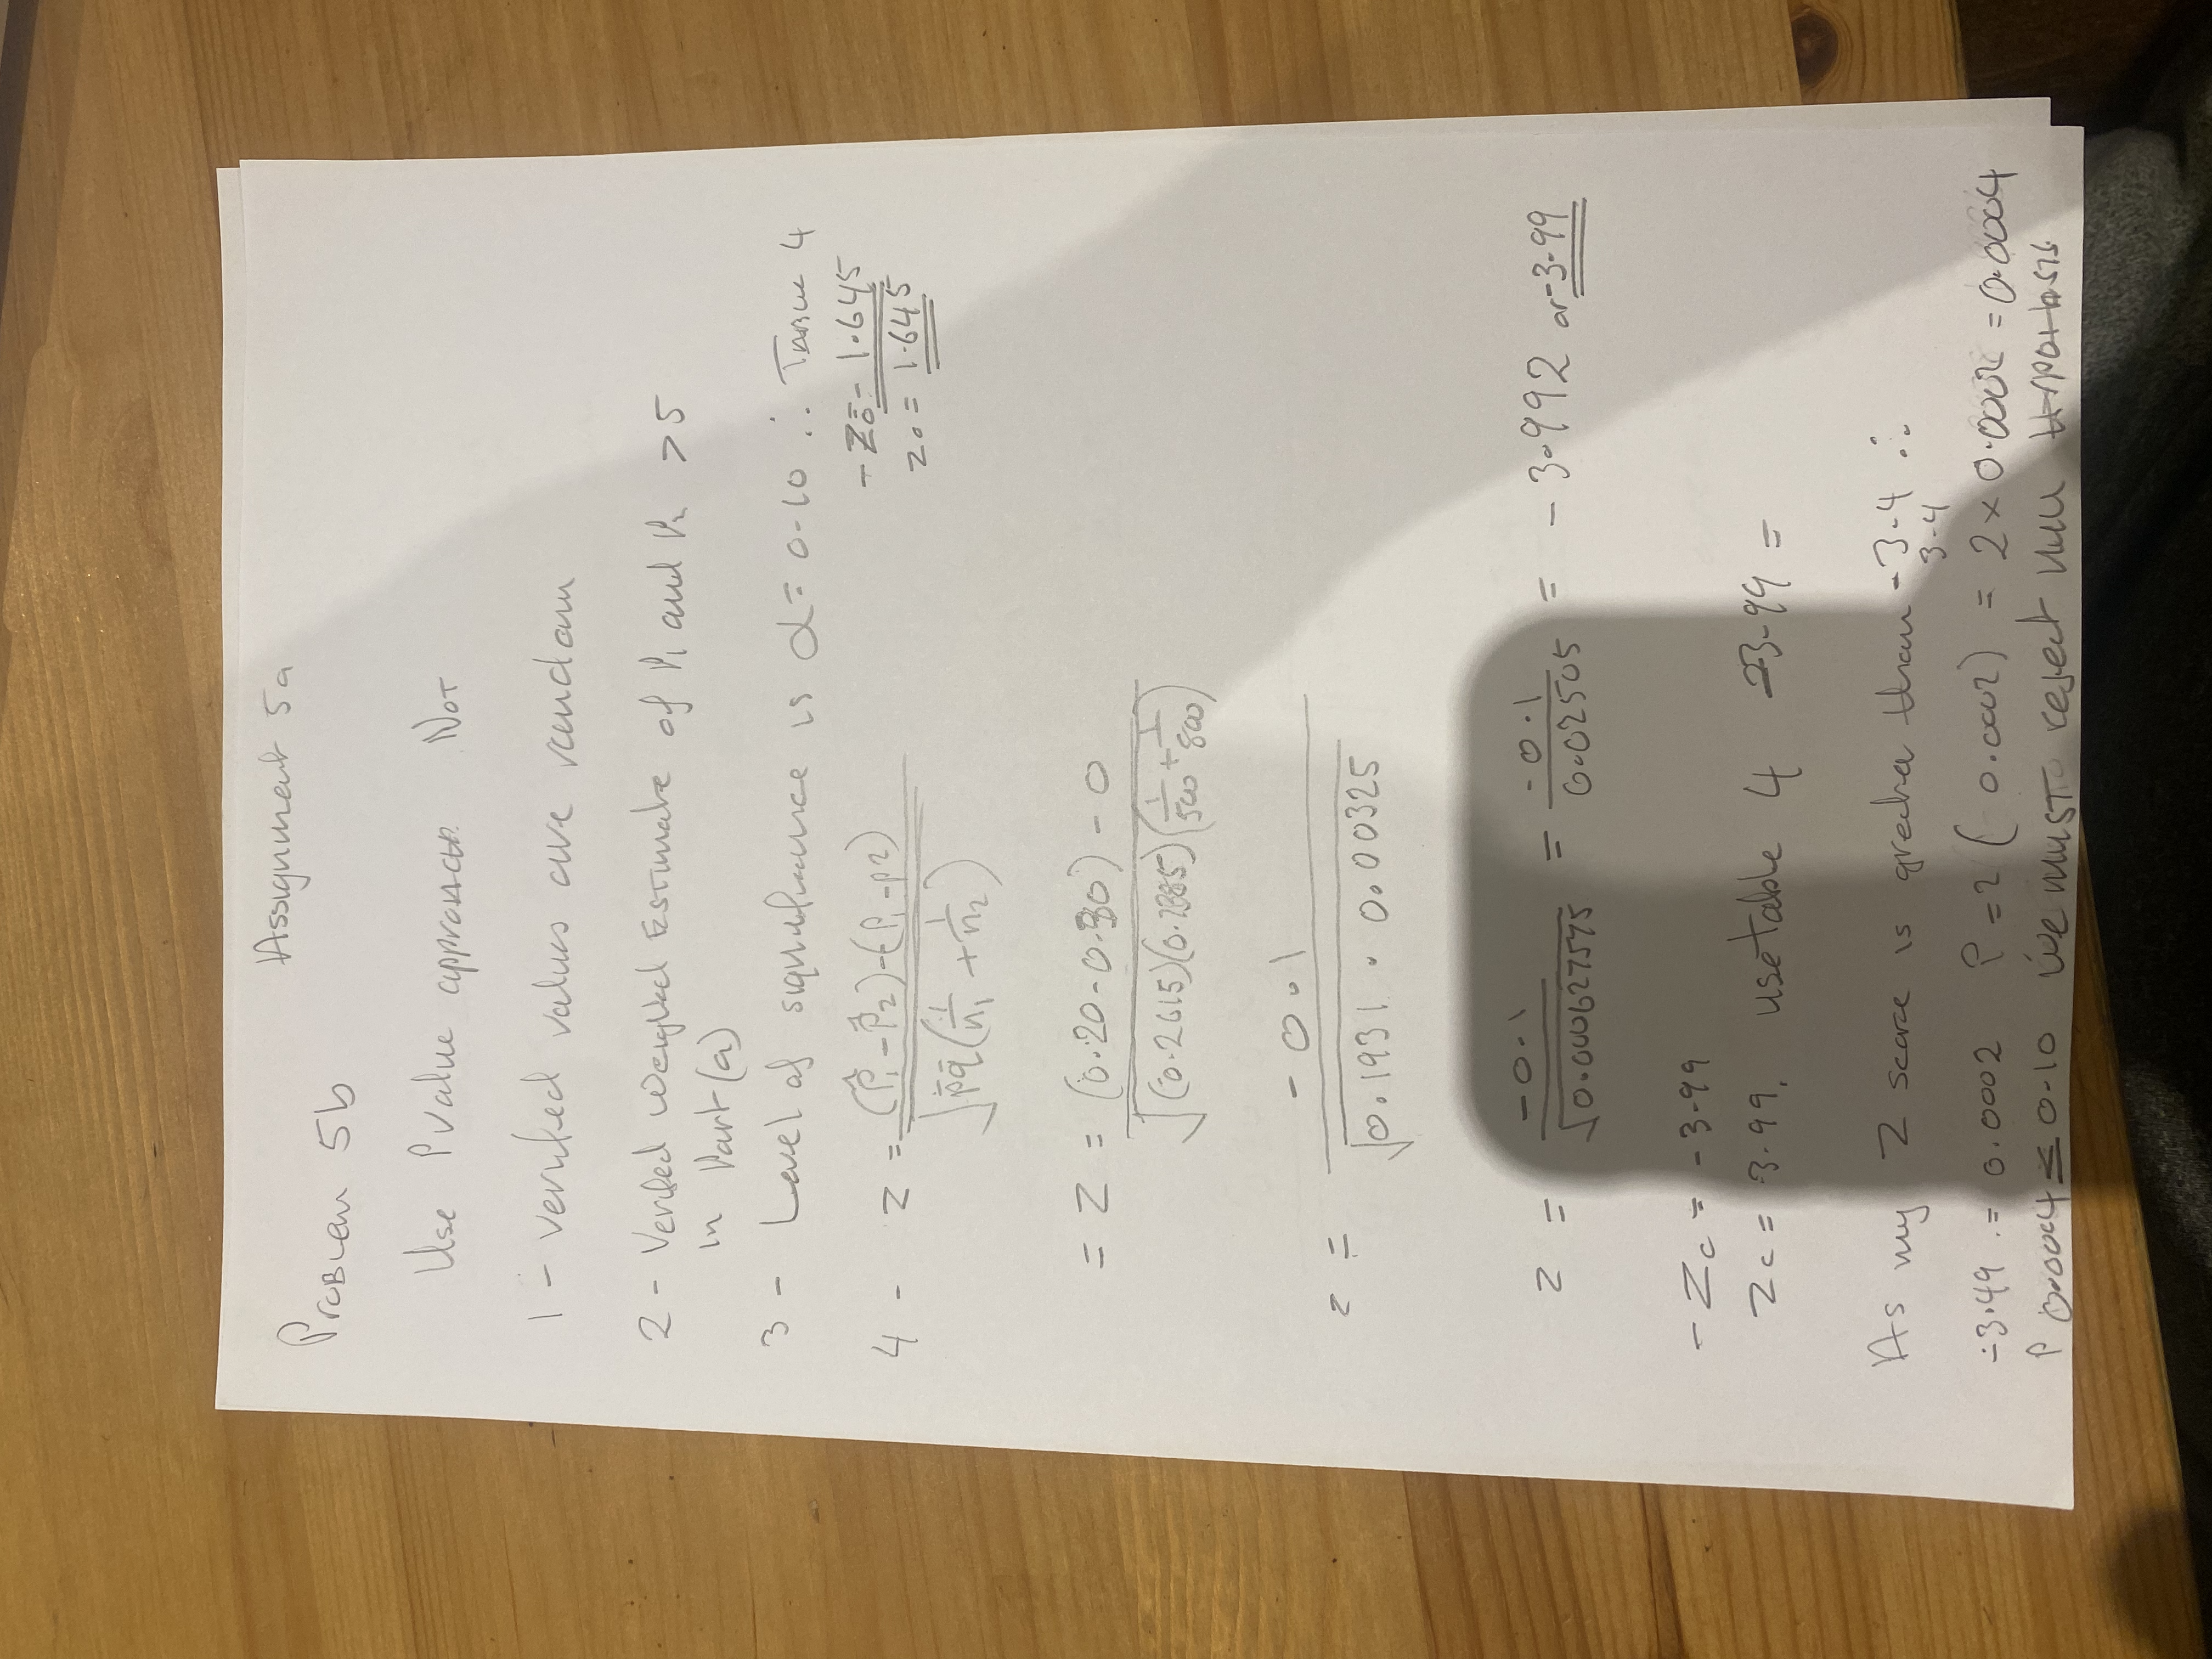 Assignment 5a
Problem 5b
Use P value approach Not
1 - verified values are random
2 - Verified weighted Estimate of P1 and P2 > 5
in Part (a)
3 - Level of significance is α = 0.10 ∴ Table 4
-Z0 = -1.645
z0 = 1.645
4 - Z = (p̂1 - p̂2) - (p1 - p2) / √p̄q̄(1/n1 + 1/n2)
= Z = (0.20 - 0.30) - 0 / √(0.2615)(0.7385)(1/500 + 1/800)
z = -0.1 / √0.1931 . 0.00325
z = -0.1 / √0.000627575 = -0.1 / 0.02505 = -3.992 or -3.99
-Zc = -3.99
Zc = 3.99. use table 4 -3.99 =
As my Z score is greater than -3.4 ∴
3.4
-3.49 .= 0.0002 P = 2 (0.0002) = 2 x 0.0002 = 0.0004
P 0.0004 ≤ 0.10 we must reject null Hypothesis